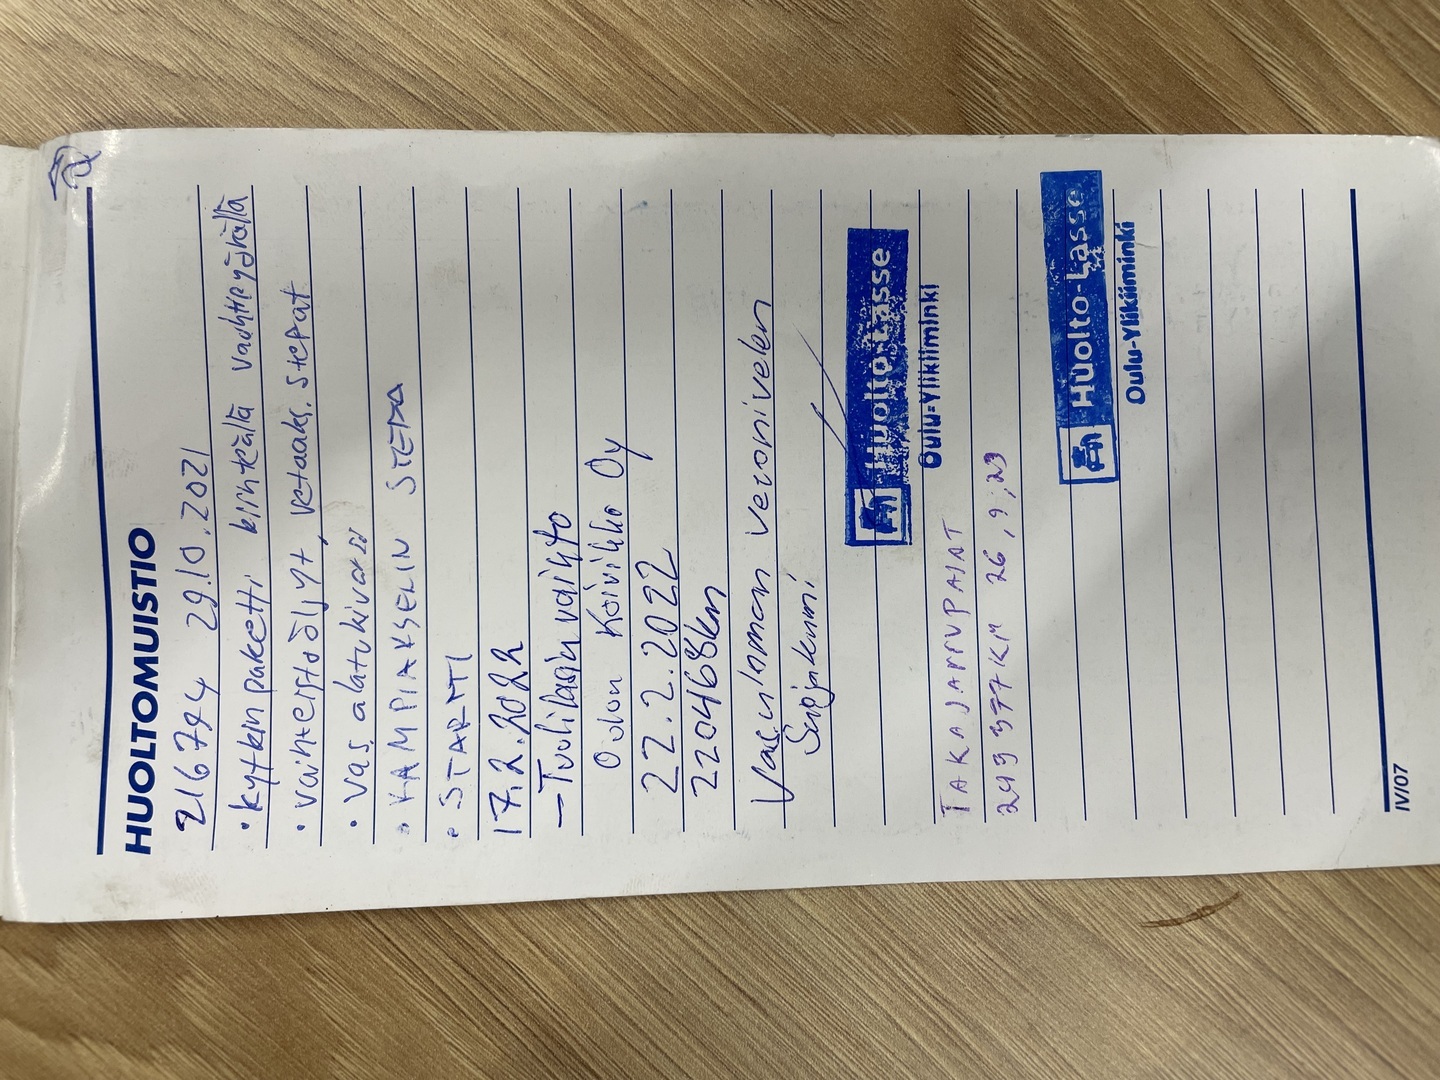 HUOLTOMUISTIO
216794 29.10.2021
• kytkin paketti kiinteällä vauhtipyörällä
• vaihteistoöljyt, vetoaks. stefat
• vas. alatukivarsi
• KAMPIAKSELIN STEFA
• STARTTI
17.2.2022
- Tuulilasin vaihto
Oulun Koivikko Oy
22.2.2022
220468km
Vas. ulomman vetonivelen
Suojakumi
Huolto-Lasse
Oulu-Ylikiiminki
TAKAJARRUPALAT
249377KM 26,9,23
Huolto-Lasse
Oulu-Ylikiiminki
IV/07